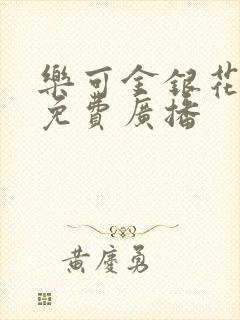 樂可金銀花
免費廣播
黃慶勇